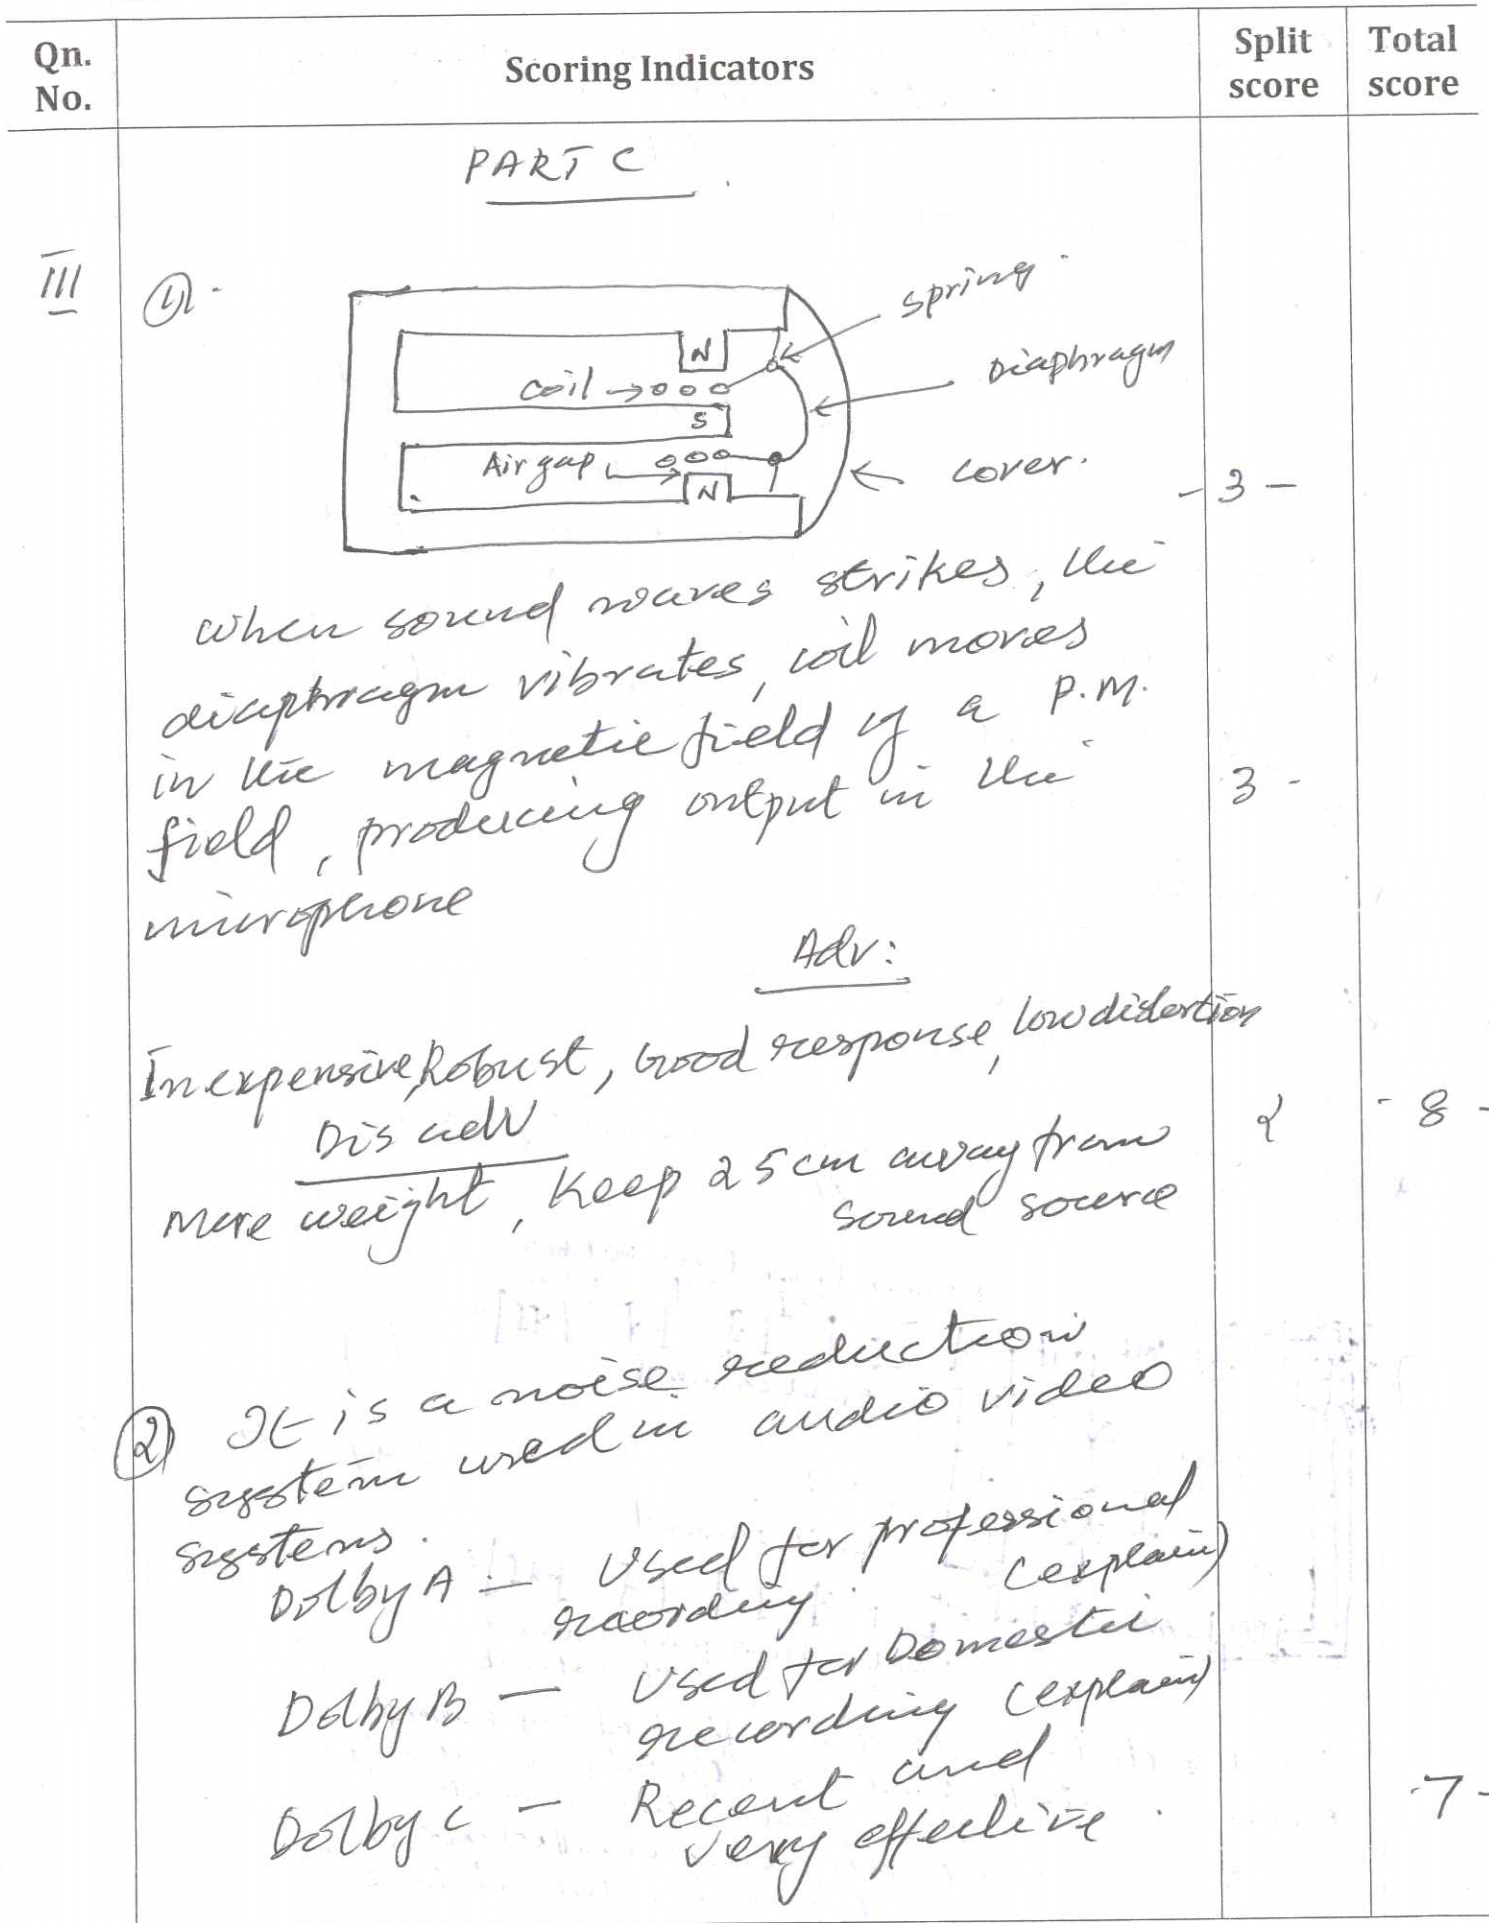 Qn. No.
Scoring Indicators
Split score
Total score
PART C
III
(1)
spring
Diaphragm
N
coil
S
Air gap
cover.
N
- 3 -
when sound waves strikes, the
diaphragm vibrates, coil moves
in the magnetic field of a P.M.
field, producing output in the
3 -
microphone
Adv:
Inexpensive, Robust, Good response, low distortion
Dis adv
2
- 8 -
More weight, Keep 25 cm away from
sound source
(2) It is a noise reduction
system used in audio video
systems.
Dolby A - Used for professional
recording (explain)
Dolby B - Used for Domestic
recording (explain)
Dolby C - Recent and
very effective.
-7-